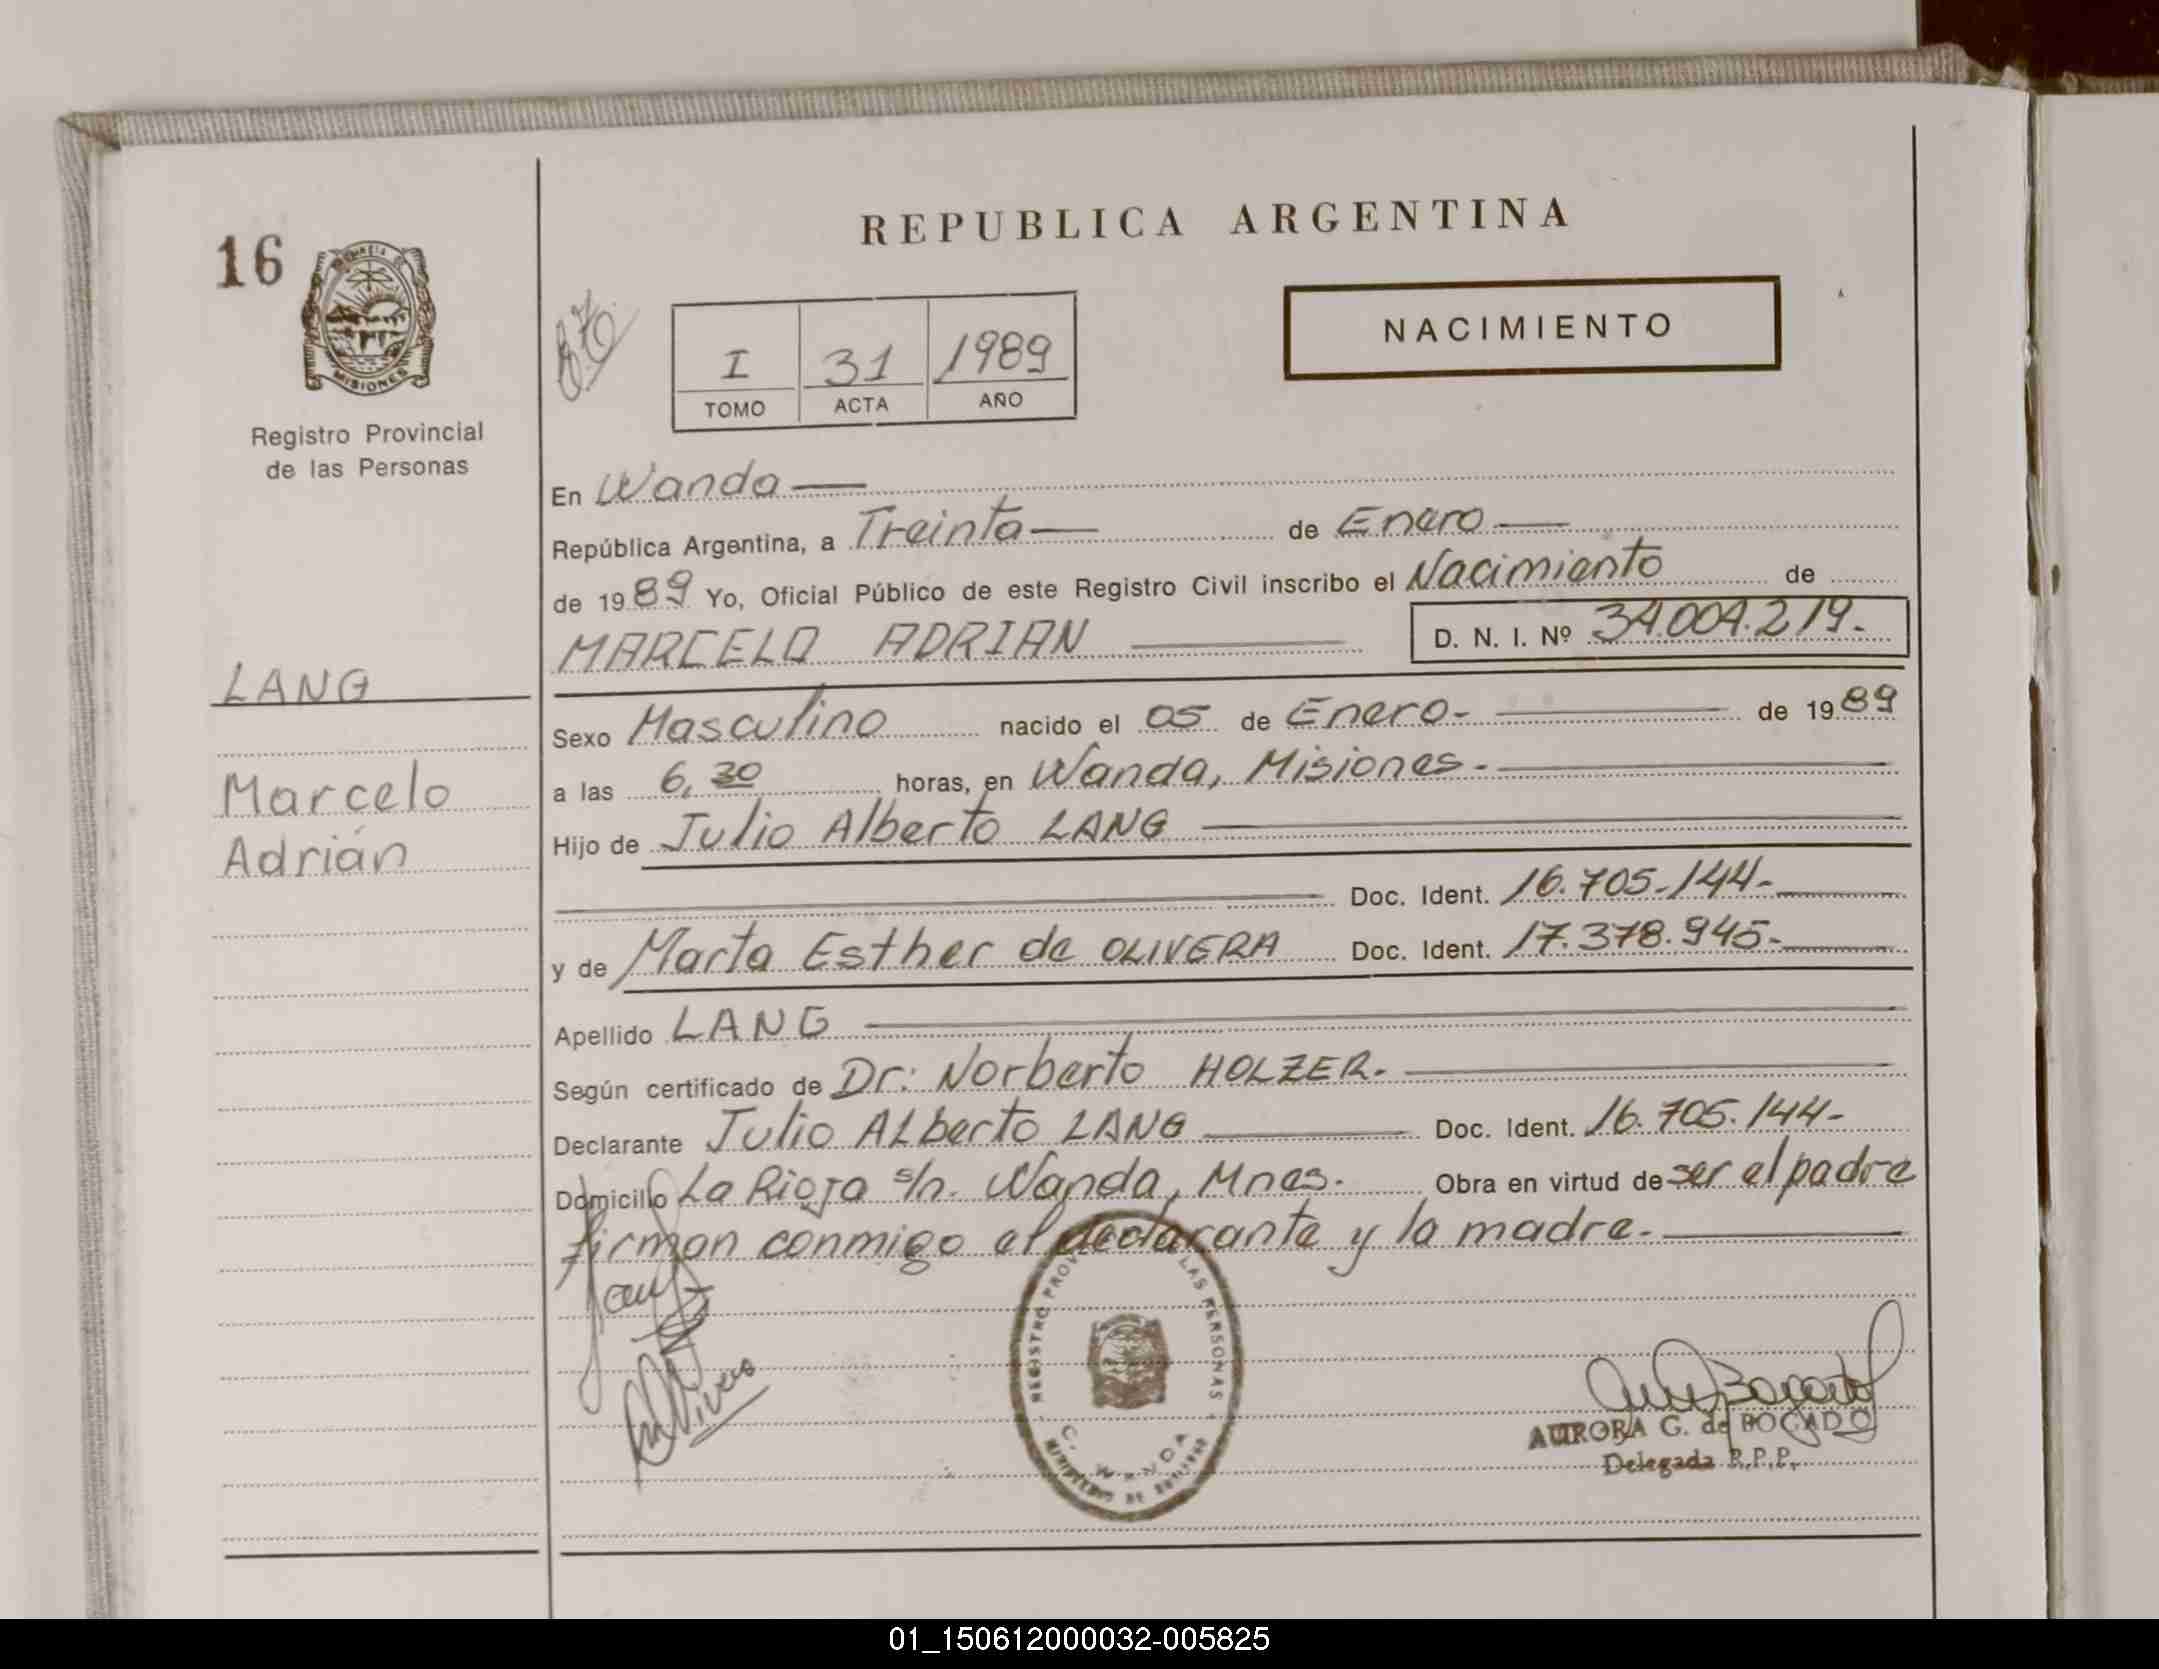 16
MISIONES
Registro Provincial
de las Personas
LANG
Marcelo
Adrián
REPUBLICA ARGENTINA
NACIMIENTO
I 31 1989
TOMO ACTA AÑO
En Wanda
República Argentina, a Treinta de Enero
de 1989 Yo, Oficial Público de este Registro Civil inscribo el Nacimiento de
MARCELO ADRIAN D. N. I. Nº 34.004.219.-
Sexo Masculino nacido el 05 de Enero.- de 1989
a las 6,30 horas, en Wanda, Misiones.-
Hijo de Julio Alberto LANG
Doc. Ident. 16.705.144.-
y de Marta Esther de OLIVERA Doc. Ident. 17.378.945.-
Apellido LANG
Según certificado de Dr: Norberto HOLZER.-
Declarante Julio ALberto LANG Doc. Ident. 16.705.144-
Domicilio La Rioja s/n. Wanda, Mnes. Obra en virtud de ser el padre
firman conmigo el declarante y la madre.-
REGISTRO PROV LAS PERSONAS
WANDA
AURORA G. de BOGADO
Delegada R.P.P.
01_150612000032-005825